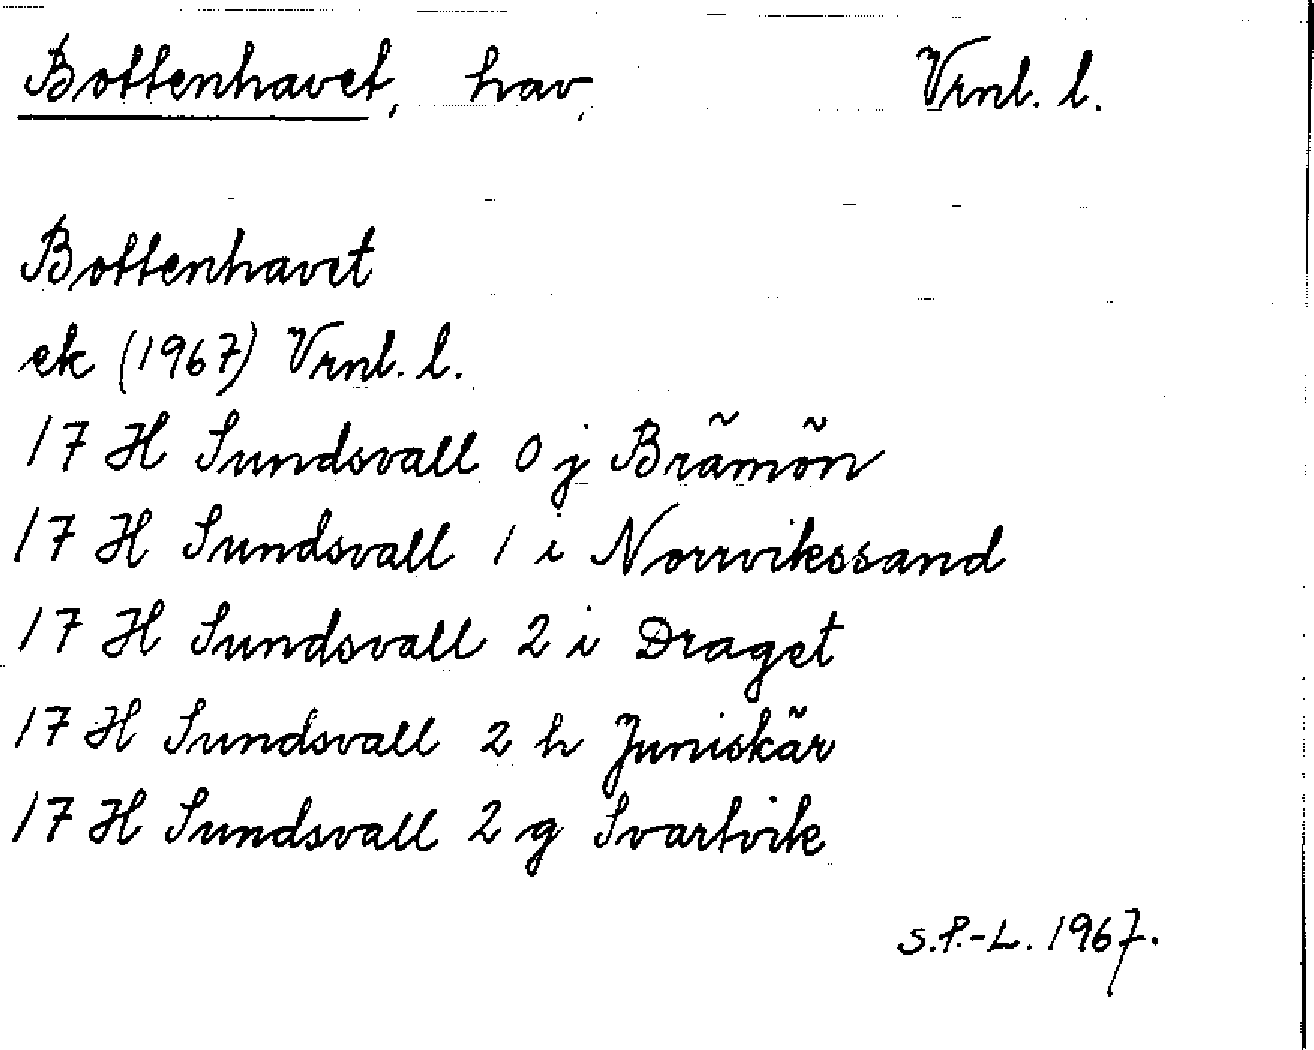 Bottenhavet, hav, Vrnl. l.
Bottenhavet
ek (1967) Vrnl. l.
17 H Sundsvall 0 j Brämön
17 H Sundsvall 1 i Norrvikssand
17 H Sundsvall 2 i Draget
17 H Sundsvall 2 h Juniskär
17 H Sundsvall 2 g Svartvik
S.P.-L. 1967.